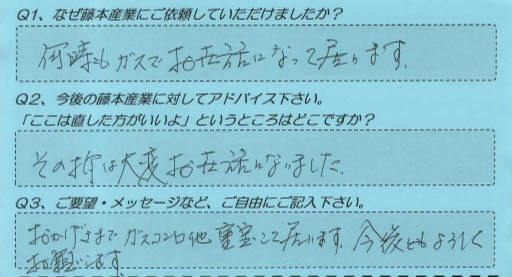 Q1、なぜ藤本産業にご依頼していただけましたか?
何時もガスでお世話になって居ります。
Q2、今後の藤本産業に対してアドバイス下さい。
「ここは直した方がいいよ」というところはどこですか?
その折は大変お世話になりました。
Q3、ご要望・メッセージなど、ご自由にご記入下さい。
おかげさまでガスコンロ他重宝して居います。今後ともよろしく
お願いします